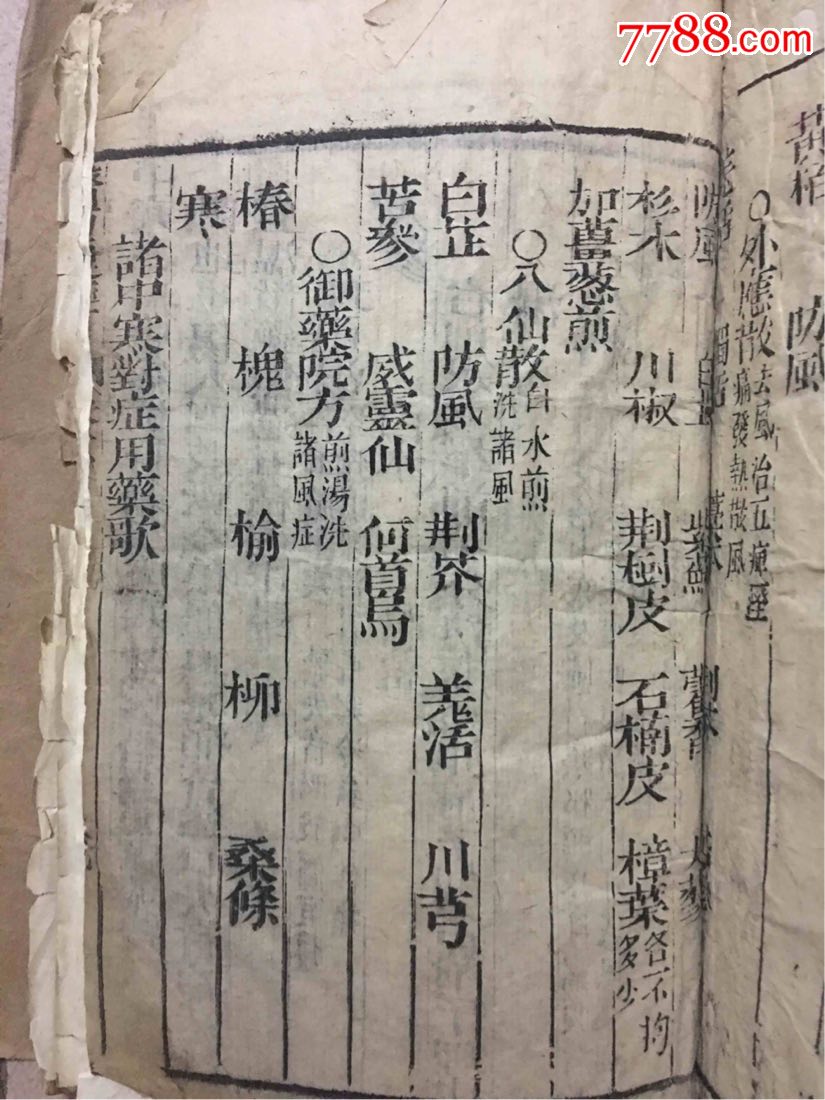 7788.com
黃栢 防風
○外應散去風治五瘟痤痛發熱散風
防風 白芷 紫蘇 藿香
杉木 川椒 荆樹皮 石楠皮 樟葉各不拘多少
加薑葱煎
○八仙散白水煎洗諸風
白芷 防風 荆芥 羗活 川芎
苦參 威靈仙 何首烏
○御藥院方煎湯洗諸風症
椿 槐 榆 柳 桑條
寒
諸中寒對症用藥歌